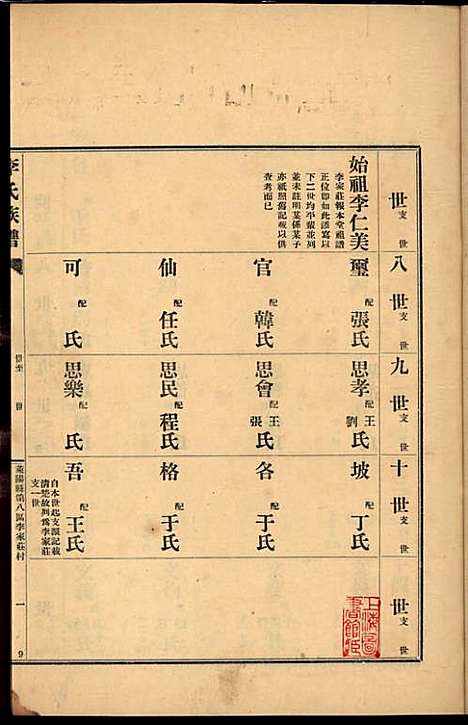 世 支 世
始祖李仁美
李家莊報本堂祖譜
正位即如此謹寫以
下二世均平輩並列
並未註明某係某子
亦祇照舊記載以供
查考而已
八世 支 世
璽 配 張氏
官 配 韓氏
仙 配 任氏
可 配 氏
九世 支 世
思孝 配 王劉氏
思會 配 王張氏
思民 配 程氏
思樂 配 氏
十世 支 世
坡 配 丁氏
各 配 于氏
格 配 于氏
吾 配 王氏
自本世起支派記載
清楚故列為李家莊
支一世
世 支 世
上海圖
書館藏
李氏族譜
世至 世
萊陽縣第八區李家莊村
一
9